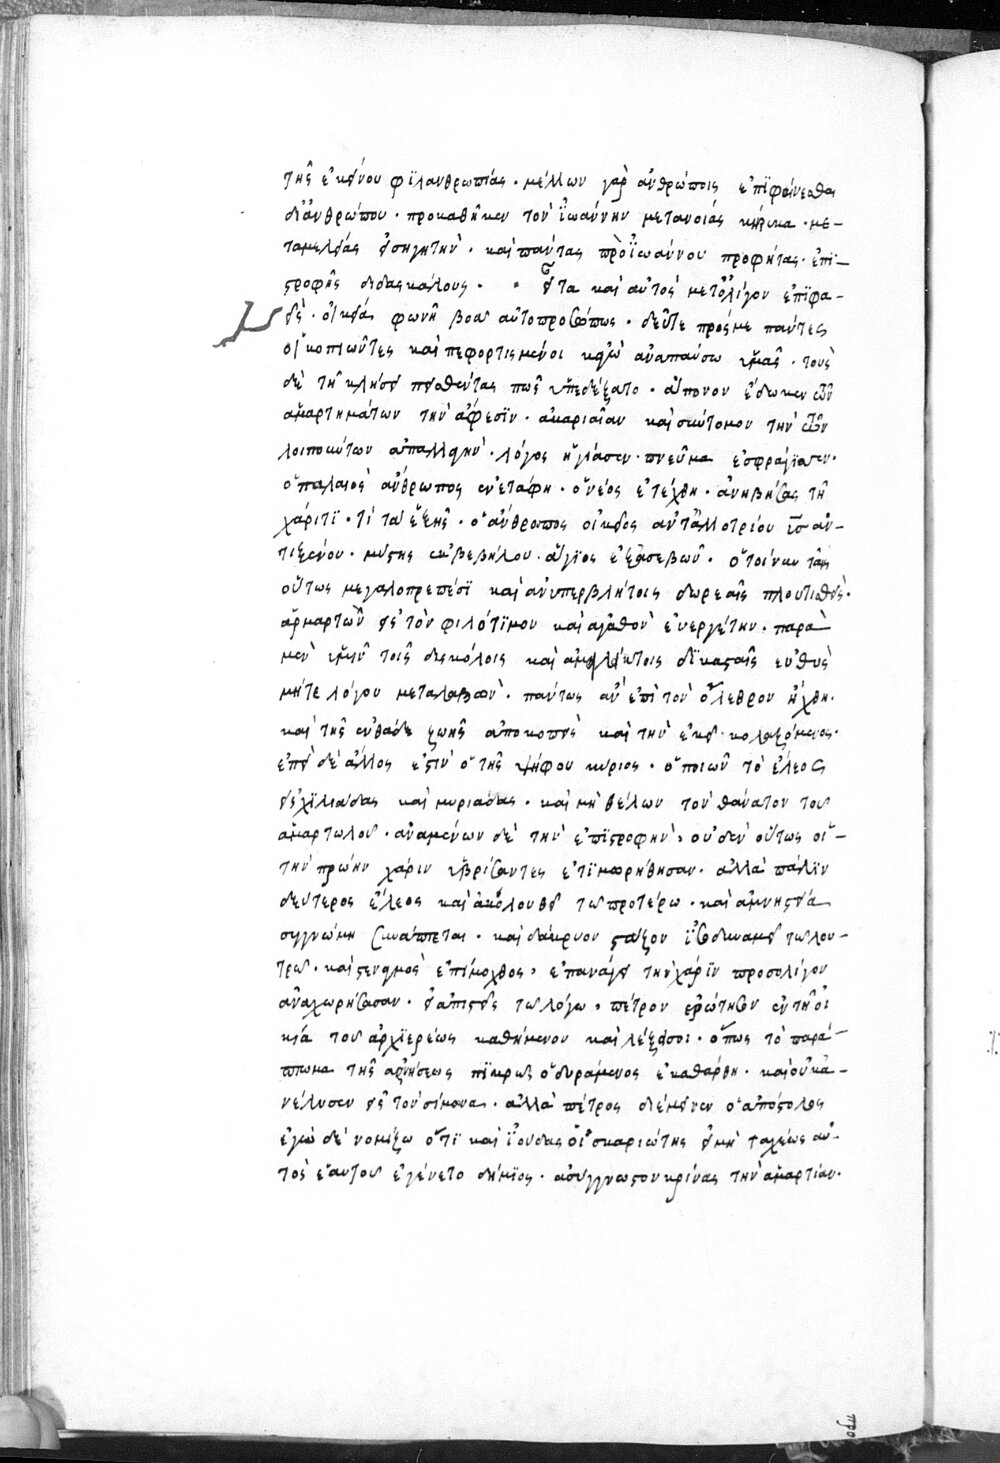 τῆς ἐκείνου φϊλανθρωπίας · μέλλων γὰρ ἀνθρώποις ἐπϊφαίνεσθαι
δι᾽ἀνθρώπου · προκαθῆκεν τὸν ἰωάννην μετανοίας κήρυκα · με-
ταμελείας εἰσηγητὴν · καὶ πάντας πρὸ ἰωάννου προφήτας · ἐπι-
στροφῆς διδασκάλους · εἶτα καὶ αὐτὸς μετ᾽ὀλίγον ἐπϊφα-
εὶς · οἰκεία φωνῆ βοᾶ αὐτοπροσώπως · δεῦτε πρός με πάντες
οἱ κοπιῶντες καὶ πεφορτισμένοι κἀγὼ ἀναπαύσω ὑμᾶς · τοὺς
δὲ τῆ κλήσει πεισθέντας πῶς ὑπεδέξατο · ἄπονον ἔδωκεν τῶν
ἁμαρτημάτων τὴν ἄφεσϊν · ἀκαριαῖαν καὶ σύντομον τὴν τῶν
λυπούντων ἀπαλλαγὴν · λόγος ἡγίασεν · πνεῦμα ἐσφράγϊσεν ·
ὁ παλαιὸς ἄνθρωπος ἐνετάφη · ὁ νέος ἐτέχθη · ἀνηβήσας τῆ
χάριτϊ · τί τὰ ἑξῆς · ὁ ἄνθρωπος οἰκεῖος ἀντ᾽ἀλλοτρίου υἱὸς ἀν-
τιξένου · μύστης ἐκ βεβήλου · ἅγϊος ἐξ ἀσεβῶν · ὁ τοίνυν ταῖς
οὕτως μεγαλοπρεπέσϊ καὶ ἀνυπερβλήτοις δωρεαῖς πλουτισθεὶς ·
ἁμαρτῶν εἰς τὸν φιλότϊμον καὶ ἀγαθὸν εὐεργέτην · παρὰ
μὲν ὑμῖν τοῖς δυσκόλοις καὶ ἀμειλίκτοις δϊκασταῖς εὐθὺς
μήτε λόγου μεταλαβὼν · πάντως ἂν ἐπὶ τὸν ὄλεθρον ἤχθη ·
καὶ τῆς ἐνθάδε ζωῆς ἀποκοπεὶς καὶ τὴν ἐκεῖ κολαζόμενος ·
ἐπεὶ δὲ ἄλλος ἐστὶν ὁ τῆς ψήφου κύριος · ὁ ποιῶν τὸ ἔλεος
εἰς χϊλιάδας καὶ μυριάδας · καὶ μὴ θέλων τὸν θάνατον τοῦ
ἁμαρτωλοῦ · ἀναμένων δὲ τὴν ἐπϊστροφὴν, οὐδὲν οὕτως οἱ
τὴν πρώην χάριν ὑβρίσαντες ἐτϊμωρήθησαν · ἀλλὰ πάλϊν
δεύτερος ἔλεος καὶ ἀκόλουθος τῶ προτέρω · καὶ ἀμνηστεία
συγγνώμη συνάπτεται · καὶ δάκρυον στάζον ἰσοδυναμεῖ τῶ λου-
τρῶ · καὶ στεναγμὸς ἐπίμοχθος, ἐπανάγει τὴν χάρϊν πρὸς ὀλίγον
ἀναχωρήσασαν · εἰ ἀπιστεῖς τῶ λόγω, πέτρον ἐρώτησον ἐν τῆ οἰ
κία τοῦ ἀρχϊερέως καθήμενον καὶ λέξει σοι · ὅπως τὸ παρά-
πτωμα τῆς ἀρνήσεως πϊκρῶς ὀδυρόμενος ἐκαθάρθη · καὶ οὐκ ἀ-
νέλυσεν εἰς τὸν σίμωνα · ἀλλὰ πέτρος διέμεινεν ὁ ἀπόστολος
ἐγὼ δὲ νομίζω ὅτϊ καὶ ἰούδας ὁ ἰσκαριώτης εἰ μὴ ταχέως αὐ-
τὸς ἑαυτοῦ ἐγένετο δήμϊος · ἀσύγγνωστον κρίνας τὴν ἁμαρτίαν ·